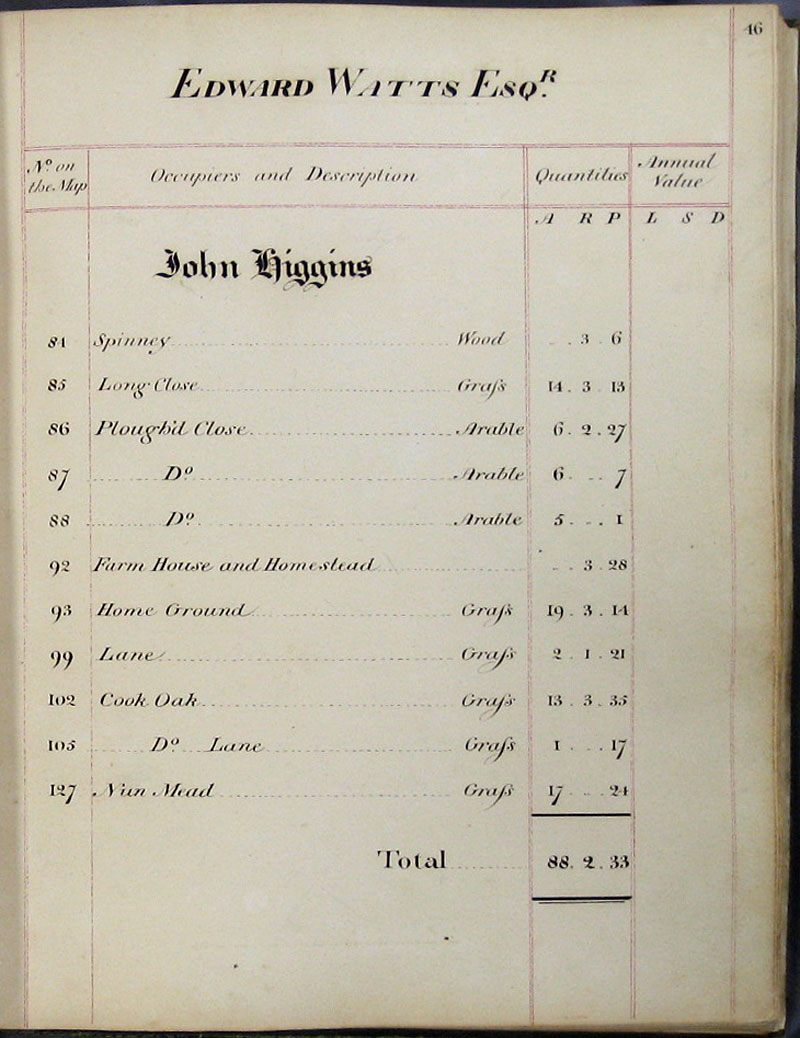 46
EDWARD WATTS ESQ.R
No. on the Map Occupiers and Description Quantities Annual Value
A R P L S D
John Higgins
84 Spinney Wood 3 6
85 Long Close Graſs 14 . 3 . 13
86 Plough'd Close Arable 6 . 2 . 27
87 Do. Arable 6 . . . 7
88 Do. Arable 5 . . . 1
92 Farm House and Homestead 3 . 28
93 Home Ground Graſs 19 . 3 . 14
99 Lane Graſs 2 . 1 . 21
102 Cook Oak Graſs 13 . 3 . 35
105 Do. Lane Graſs 1 . . . 17
127 Nun Mead Graſs 17 . . . 24
Total 88 . 2 . 33